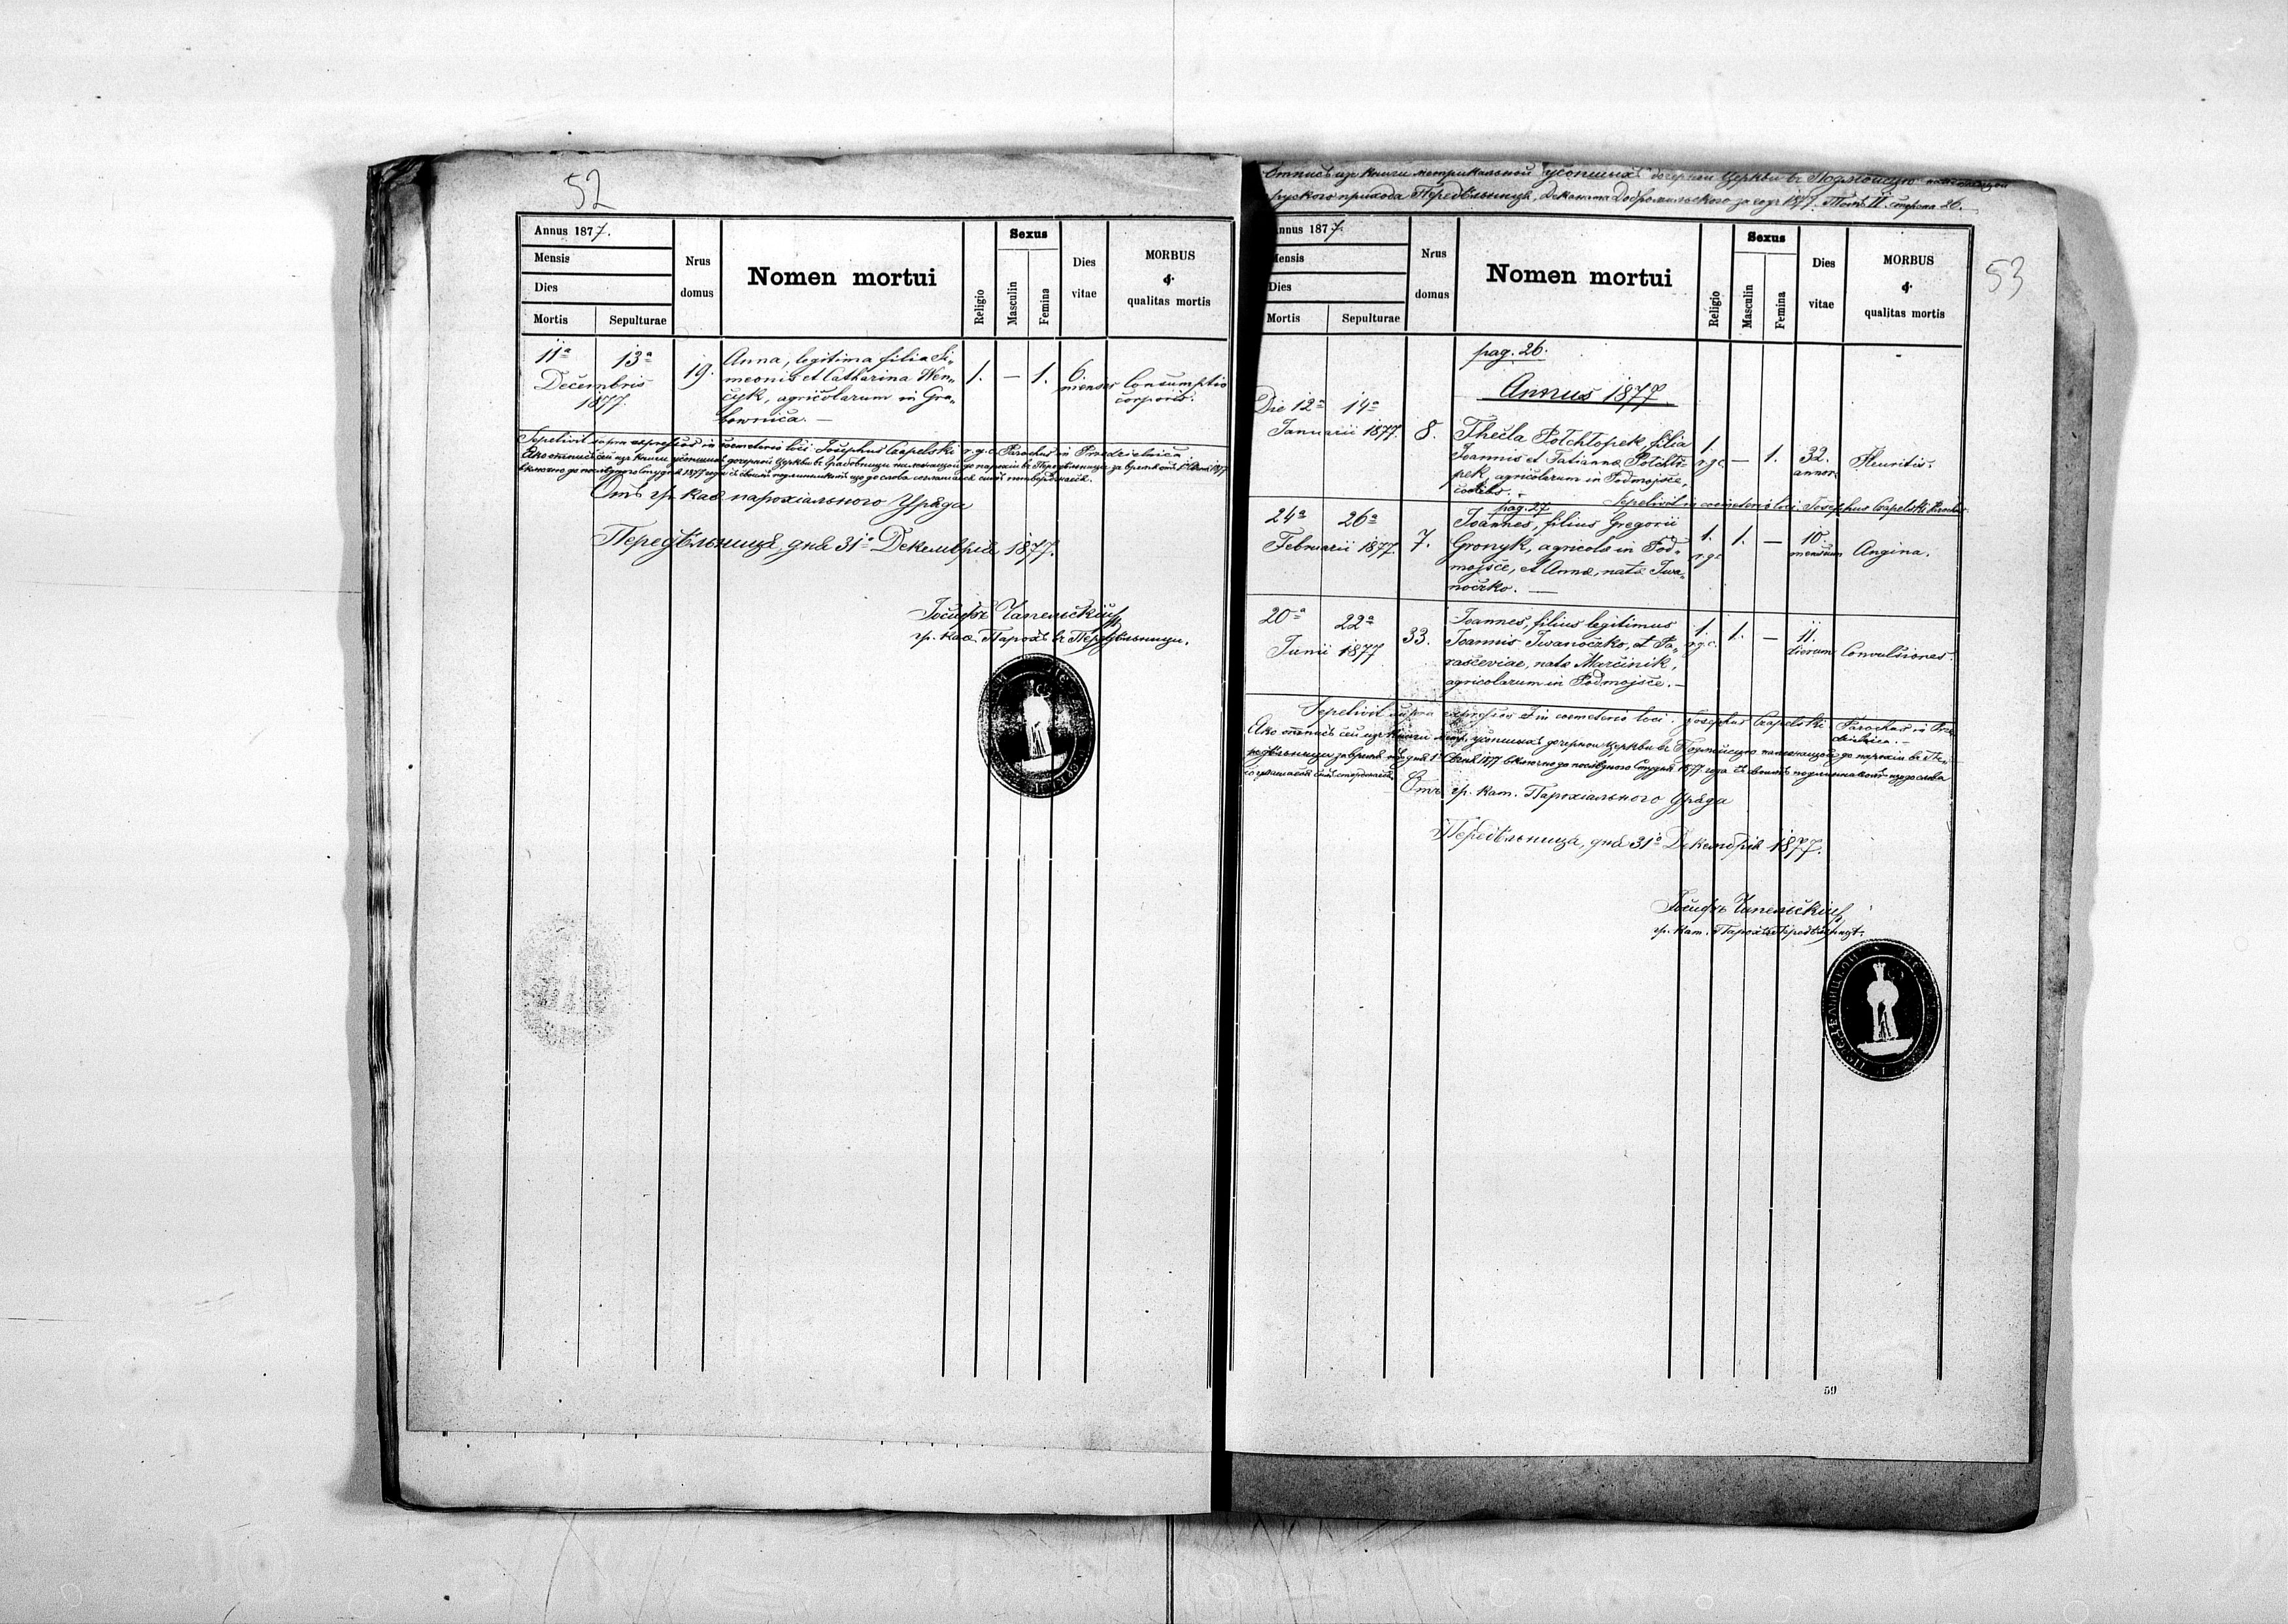 52
Annus 1877.
Mensis
Dies
Mortis
Sepulturae
Nrus
domus
Nomen mortui
Religio
Sexus
Masculin
Femina
Dies
vitae
MORBUS
&
qualitas mortis
11ª 13ª
Decembris
1877.
19.
Anna, legitima filia Si-
meonis et Catharina Wen-
cyk, agricolarum in Gra-
bownica. —
1. — 1.
6
menses
Consumptio
corporis.
Sepelivit supra expressos in coemeterio loci Josephus Czapelski r. g. c. Parochus in Predzielnica
Отъ гр. каѳ. парохіального Уряда
Передѣльница, дня 31º Декемврія 1877.
Іосифъ Чапельскій
гр. каѳ. Парохъ въ Передѣльници.
Отписъ изъ книги метрикальной усопшихъ дочерной Церкви въ Подмойсцю
руского прихода Передѣльница, Деканата Добромильского за годъ 1877. Томъ II. сторона 26.
53
Annus 1877.
Mensis
Dies
Mortis
Sepulturae
Nrus
domus
Nomen mortui
Religio
Sexus
Masculin
Femina
Dies
vitae
MORBUS
&
qualitas mortis
pag. 26.
Annus 1877.
Die 12ª 14ª
Januarii 1877.
8.
Thecla Potchlopek, filia
Joannis et Tatianna Potchlo-
pek, agricolarum in Podmojsce,
coelebs.
1.
r.g.c.
— 1.
32.
annor.
Pleuritis.
Sepelivit in coemeterio loci Josephus Czapelski Parochus.
pag. 27.
24ª 26ª
Februarii 1877.
7.
Joannes, filius Gregorii
Gronyk, agricola in Pod-
mojsce, et Anna, nata Iwa-
noczko. —
1.
r.g.c.
1. —
10.
mensium
Angina.
20ª 22ª
Junii 1877
33.
Joannes, filius legitimus
Joannis Iwanoczko, et Pa-
rasceviae, nata Marcinik,
agricolarum in Podmojsce. —
1.
r.g.c.
1. —
11.
dierum
Convulsiones.
Sepelivit supra expressos in coemeterio loci. Josephus Czapelski Parochus in Pre-
dzielnica. —
Отъ гр. кат. Парохіального Уряда
Передѣльница, дня 31º Декемврія 1877.
Іосифъ Чапельскій
гр. кат. Парохъ
59